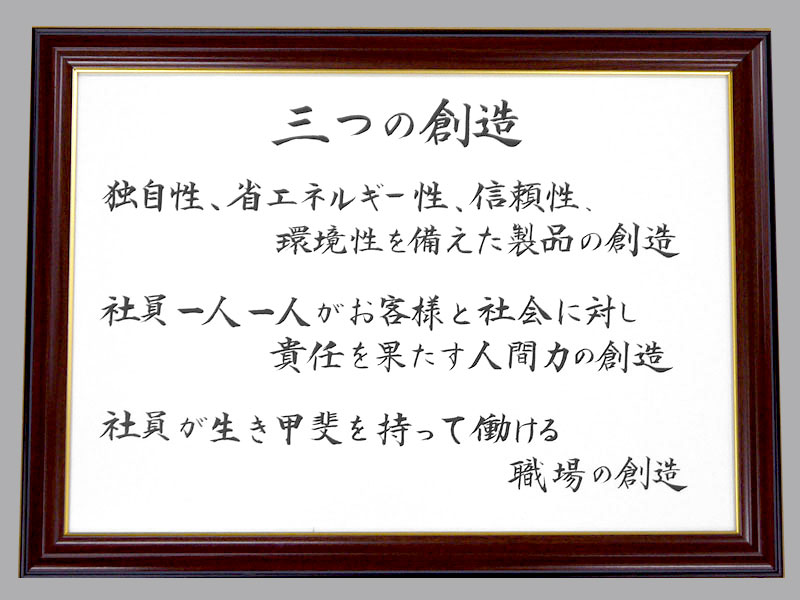 三つの創造
独自性、省エネルギー性、信頼性、
環境性を備えた製品の創造
社員一人一人がお客様と社会に対し
責任を果たす人間力の創造
社員が生き甲斐を持って働ける
職場の創造